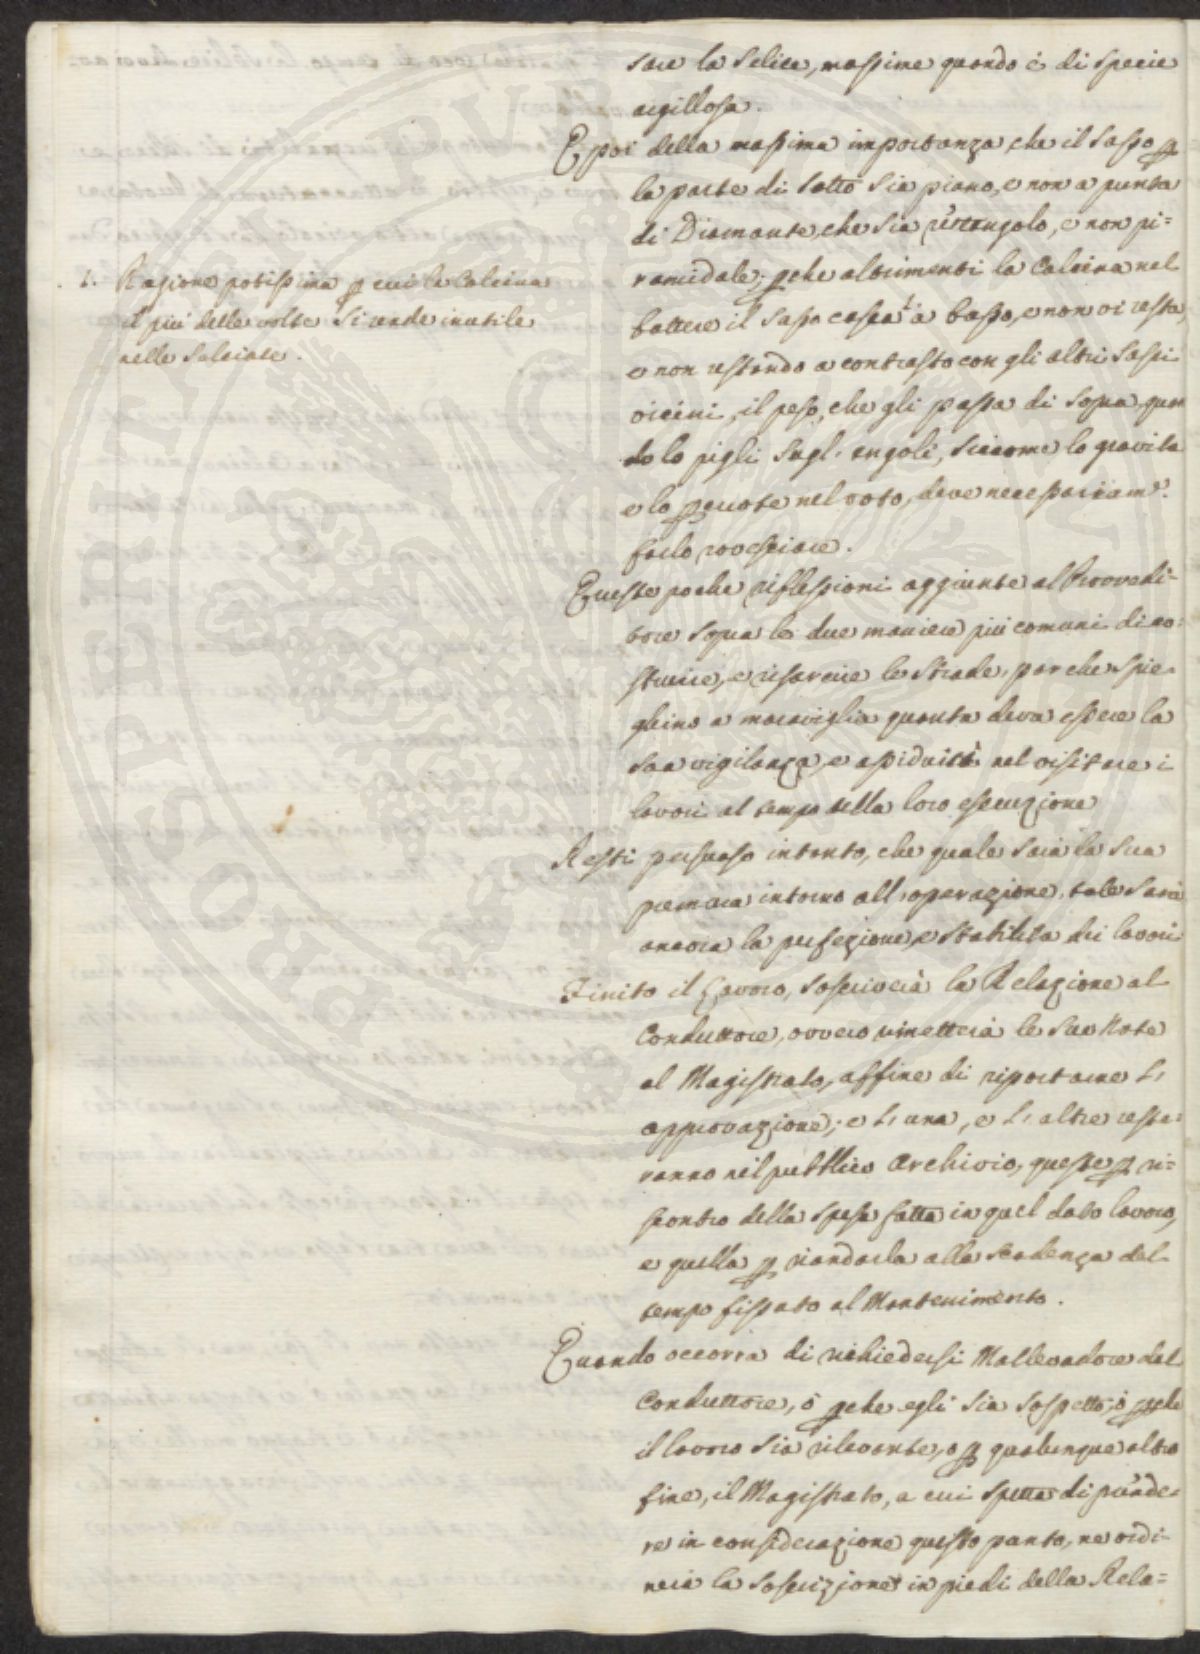 sare la Selice, massime quando è di specie
argillosa.
E poi della massima importanza, che il Sasso p
la parte di sotto sia piano, e non a punta
di Diamante, che sia rettangolo, e non pi=
ramidale; pche altrimenti la Calcina nel
battere il Sasso casca a basso, e non vi resta,
e non restando a contrasto con gli altri Sassi
vicini, il peso, che gli passa di sopra, quan
do lo pigli sugl' angoli, siccome lo gravita
e lo pcuote nel voto, deve necessariam.e
farlo rovesciare.
1. Ragione potissima p cui la Calcina
il più delle volte si rende inutile
nelle Selciate.
Queste poche riflessioni aggiunte al Provvedi=
tore sopra le due maniere più comuni di co=
struire, e risarcire le Strade, par che spie=
ghino a maraviglia quanta deva essere la
sua vigilanza, e assiduità nel visitare i
lavori al tempo della loro esecuzione
Resti persuaso intanto, che quale sarà la sua
premura intorno all' operazione, tale sarà
ancora la perfezione, e stabilità dei lavori
Finito il Lavoro, soscriverà la Relazione al
Conduttore, ovvero rimetterà le sue Note
al Magistrato, affine di riportarne l'
approvazione; e l' una, e l' altre reste=
ranno nel pubblico Archivio, queste p ri=
scontro della spesa fatta in quel dato lavoro,
e quella p riandarla alla scadenza del
tempo fissato al Mantenimento.
Quando occorra di richiedersi Mallevadore dal
Conduttore, ò pche egli sia sospetto, ò pche
il lavoro sia rilevante, o p qualunque altro
fine, il Magistrato, a cui spetta di prende=
re in considerazione questo punto, ne ordi=
nerà la soscrizione in piedi della Rela=